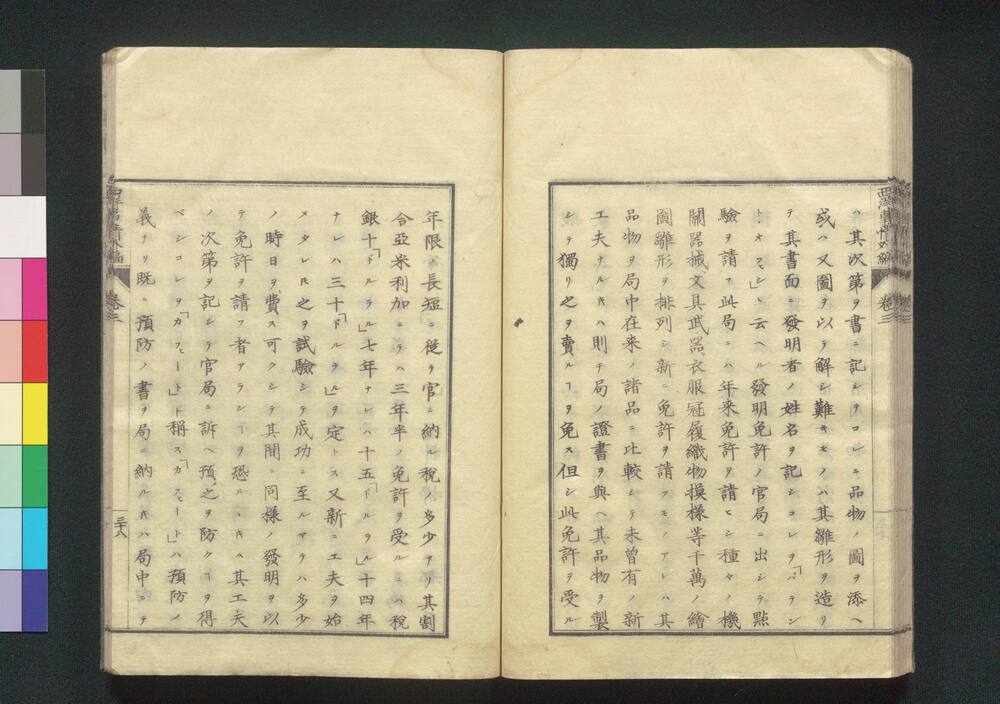 ハ其次第ヲ書ニ記シテコレニ品物ノ圖ヲ添ヘ
或ハ又圖ヲ以テ解シ難キモノハ其雛形ヲ造リ
テ其書面ニ發明者ノ姓名ヲ記シコレヲ「パテン
ト、オフヒシ」ト云ヘル發明免許ノ官局ニ出シテ點
驗ヲ請フ此局ニハ年来免許ヲ請ヒシ種々ノ機
關器械文具武器衣服冠履織物摸樣等千萬ノ繪
圖雛形ヲ排列シ新ニ免許ヲ請フモノアレハ其
品物ヲ局中在来ノ諸品ニ比較シテ未曾有ノ新
工夫ナルキハ則チ局ノ證書ヲ與ヘ其品物ヲ製
シテ獨リ之ヲ賣ルヿヲ免ス但シ此免許ヲ受ル
西洋事情外編
卷三
年限ノ長短ニ従テ官ニ納ル税ノ多少アリ其割
合亞米利加ニテハ三年半ノ免許ヲ受ルニハ税
銀十「ドルラル」七年ナレハ十五「ドルラル」十四年
ナレハ三十「ドルラル」ヲ定トス又新ニ工夫ヲ始
メタレ𪜈之ヲ試驗シテ成功ニ至ルマテハ多少
ノ時日ヲ費ス可クシテ其間ニ同樣ノ發明ヲ以
テ免許ヲ請フ者アランヿヲ恐ルヽキハ其工夫
ノ次第ヲ記シテ官局ニ訴ヘ預メ之ヲ防クヿヲ得
ベシコレヲ「カフヒート」ト稱ス「カフヒート」ハ預防ノ
義ナリ既ニ預防ノ書ヲ局ニ納ルキハ局中ニテ
西洋事情外編
卷三
三十八